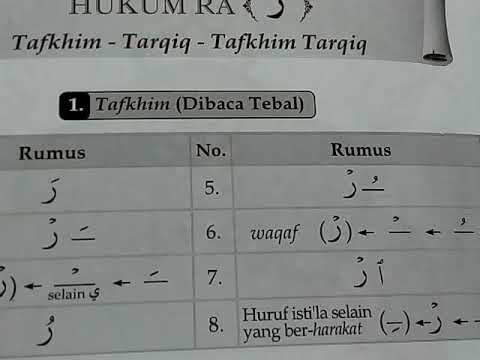 HUKUM RA ﴿ رْ ﴾
Tafkhim - Tarqiq - Tafkhim Tarqiq
1. Tafkhim (Dibaca Tebal)
Rumus No. Rumus
رَ 5. ـُ رْ
ـَ رْ 6. waqaf (رْ) ← ـْ ← ـُ
(رْ) ← ـْ selain ي ← ـَ 7. اُ رْ
رُ 8. Huruf isti'la selain
yang ber-harakat (ـِ) ← رْ ←